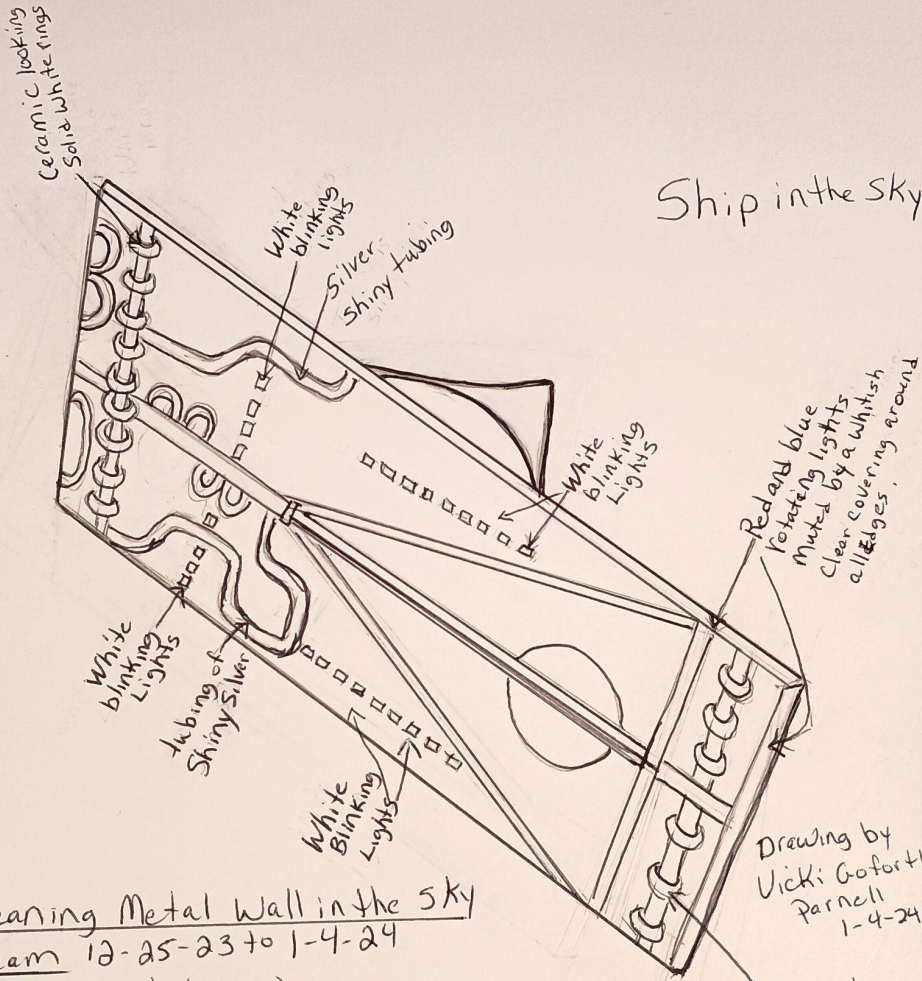 Ceramic looking
Solid white rings
Ship in the Sky
White
blinking
lights
Silver
Shiny tubing
White
blinking
Lights
Red and blue
rotating lights
Muted by a whitish
Clear covering around
all Edges.
White
blinking
Lights
tubing of
Shiny Silver
White
Blinking
Lights
Drawing by
Vicki Goforth
Parnell
1-4-24
Metal Wall in the Sky
12-25-23 to 1-4-24